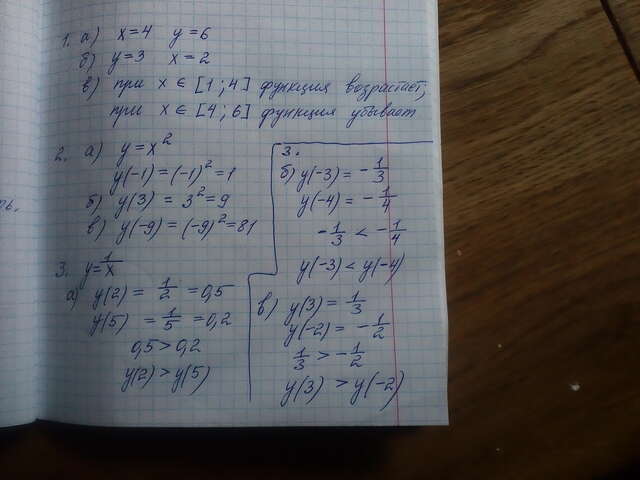 1. а) x=4 y=6
б) y=3 x=2
в) при x ∈ [1;4] функция возрастает,
при x ∈ [4;6] функция убывает
2. а) y=x²
y(-1)=(-1)²=1
б) y(3) = 3²=9
в) y(-9)=(-9)²=81
3. y=1/x
а) y(2) = 1/2 =0,5
y(5) = 1/5 =0,2
0,5>0,2
y(2)>y(5)
3.
б) y(-3)= -1/3
y(-4)= -1/4
-1/3 < -1/4
y(-3)<y(-4)
в) y(3)= 1/3
y(-2)= -1/2
1/3 > -1/2
y(3) >y(-2)